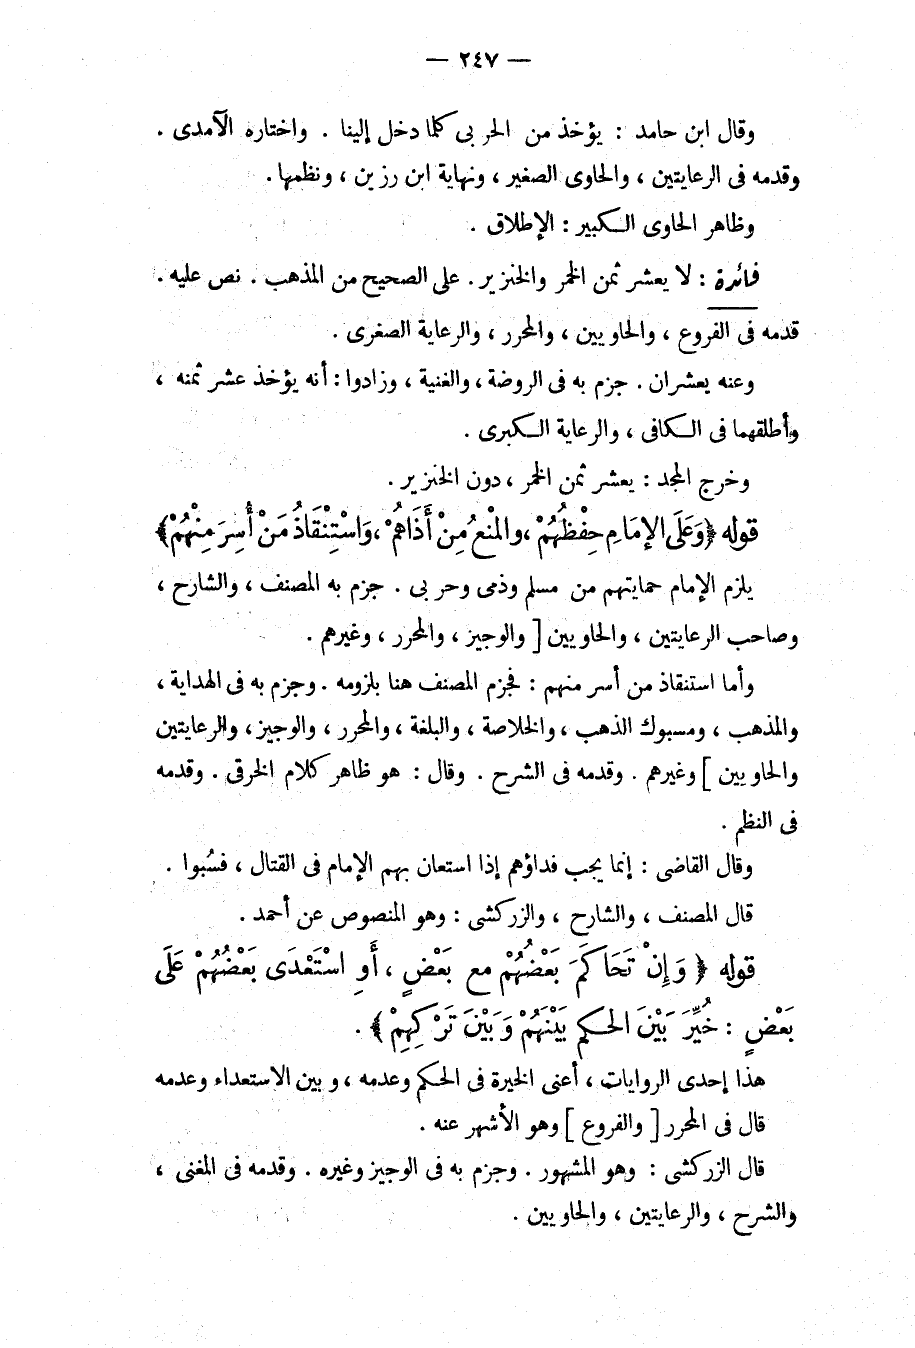 — ٢٤٧ —
وقال ابن حامد : يؤخذ من الحربى كلما دخل إلينا . واختاره الآمدى .
وقدمه فى الرعايتين ، والحاوى الصغير ، ونهاية ابن رزين ، ونظمها .
وظاهر الحاوى الكبير : الإطلاق .
فائدة : لا يعشر ثمن الخمر والخنزير . على الصحيح من المذهب . نص عليه .
قدمه فى الفروع ، والحاويين ، والمحرر ، والرعاية الصغرى .
وعنه يعشران . جزم به فى الروضة ، والغنية ، وزادوا : أنه يؤخذ عشر ثمنه ،
وأطلقهما فى الكافى ، والرعاية الكبرى .
وخرج المجد : يعشر ثمن الخمر ، دون الخنزير .
قوله ﴿ وَعَلَى الإمَامِ حِفْظُهُمْ ، والمَنْعُ مِنْ أَذَاهُمْ ، وَاسْتِنْقَاذُ مَنْ أُسِرَ مِنْهُمْ ﴾
يلزم الإمام حمايتهم من مسلم وذمى وحربى . جزم به المصنف ، والشارح ،
وصاحب الرعايتين ، والحاويين [ والوجيز ، والمحرر ، وغيرهم .
وأما استنقاذ من أسر منهم : فجزم المصنف هنا بلزومه . وجزم به فى الهداية ،
والمذهب ، ومسبوك الذهب ، والخلاصة ، والبلغة ، والمحرر ، والوجيز ، والرعايتين
والحاويين ] وغيرهم . وقدمه فى الشرح . وقال : هو ظاهر كلام الخرقى . وقدمه
فى النظم .
وقال القاضى : إنما يجب فداؤهم إذا استعان بهم الإمام فى القتال ، فسُبوا .
قال المصنف ، والشارح ، والزركشى : وهو المنصوص عن أحمد .
قوله ﴿ وَإِنْ تَحَاكَمَ بَعْضُهُمْ مع بَعْضٍ ، أَوِ اسْتَعْدَى بَعْضُهُمْ عَلَى
بَعْضٍ : خُيِّرَ بَيْنَ الحكم بَيْنَهُمْ وَبَيْنَ تَرْكِهِمْ ﴾ .
هذا إحدى الروايات ، أعنى الخيرة فى الحكم وعدمه ، وبين الاستعداء وعدمه
قال فى المحرر [ والفروع ] وهو الأشهر عنه .
قال الزركشى : وهو المشهور . وجزم به فى الوجيز وغيره . وقدمه فى المغنى ،
والشرح ، والرعايتين ، والحاويين .